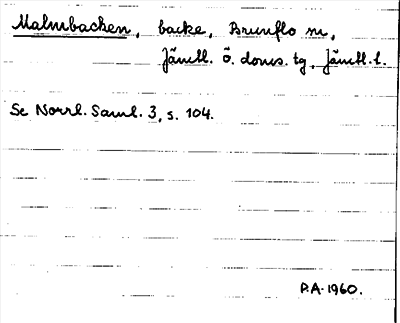 Malmbacken, backe, Brunflo sn,
Jämtl. ö. doms. tg, Jämtl. l.
Se Norrl. Saml. 3, s. 104.
P.A. 1960.